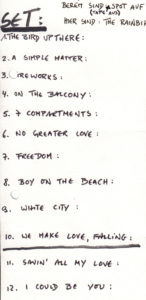 BEREIT SIND SPOT AUF
(TAPE AUS)
SET: HIER SIND: THE RAINBIR
1. THE BIRD UP THERE:
2. A SIMPLE MATTER:
3. FIREWORKS:
4. ON THE BALCONY:
5. 7 COMPARTMENTS:
6. NO GREATER LOVE:
7. FREEDOM:
8. BOY ON THE BEACH:
9. WHITE CITY:
10. WE MAKE LOVE, FALLING:
11. SAVIN' ALL MY LOVE:
12. I COULD BE YOU: